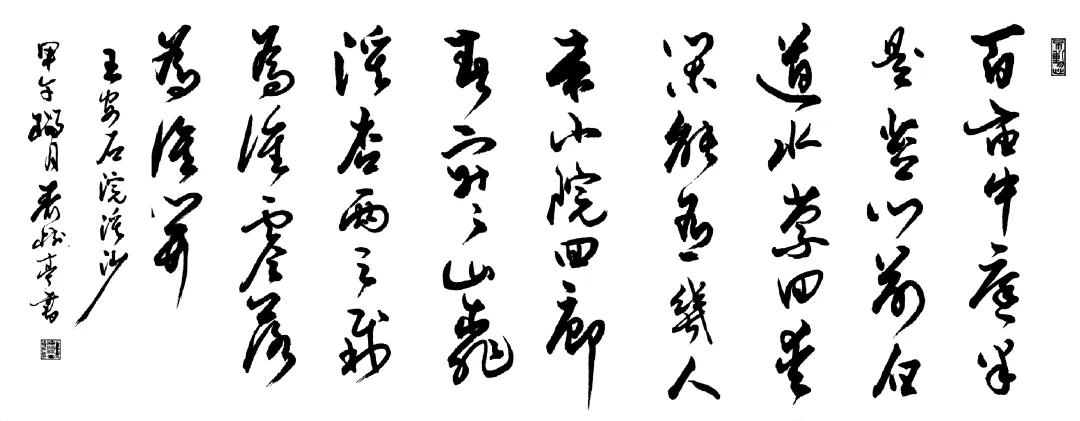 百亩中庭半
是苔门前白
道水萦回爱
闲能有幾人
来小院回廊
春寂々山桃
溪杏两三栽
為谁零落
為谁開
王安石浣溪沙
甲午月書